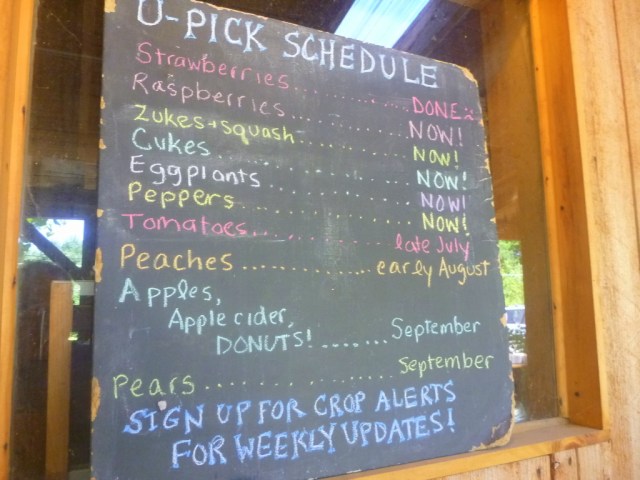 U-PICK SCHEDULE
Strawberries............DONE :(
Raspberries............NOW!
Zukes+squash............NOW!
Cukes............NOW!
Eggplants............NOW!
Peppers............NOW!
Tomatoes............late July
Peaches............early August
Apples,
Apple cider,
DONUTS!........September
Pears............September
SIGN UP FOR CROP ALERTS
FOR WEEKLY UPDATES!